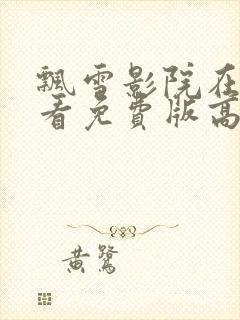 飘雪影院在
看免費版高
黄鷺